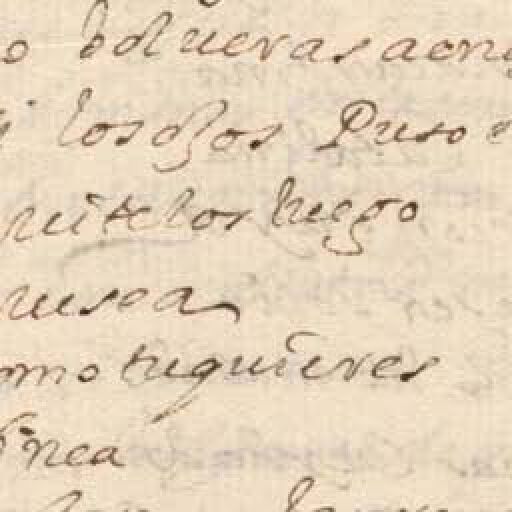 o bolueras aeng
i los ojos Puso e
quitelos luego
usea
omo tu quieres
inea